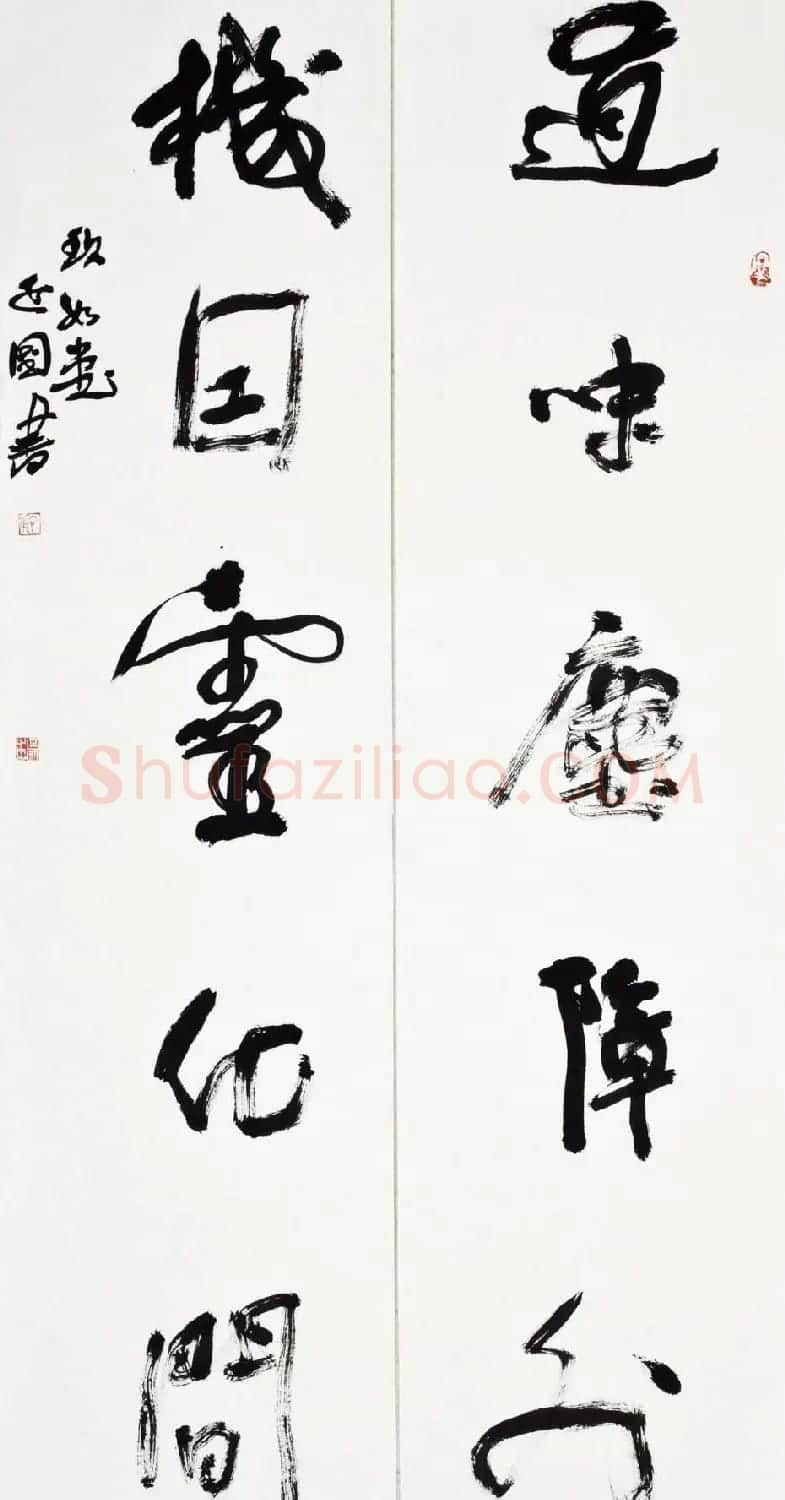 道味塵障外
機因靈化間
玖如堂
世國書
Shufaziliao.COM